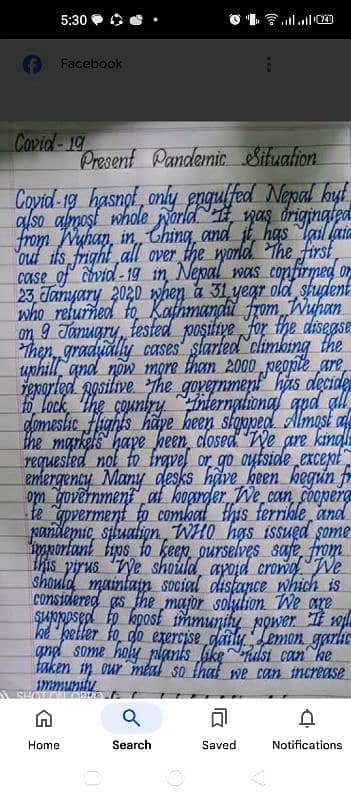 5:30
74
Facebook
Covid-19
Present Pandemic Situation
Covid-19 hasnot only engulfed Nepal but
also almost whole world. It was originated
from Wuhan in China and it has
out its fright all over the world. The first
case of covid-19 in Nepal was confirmed on
23 January 2020 when a 31 year old student
who returned to Kathmandu from Wuhan
on 9 January, tested positive for the disease
Then gradually cases started climbing the
uphill and now more than 2000 people are
reported positive. The government has decide
to lock the country. International and all
domestic flights have been stopped. Almost al
the markets have been closed. We are kindl
requested not to travel or go outside except
emergency. Many desks have been begun fr
om government at boarder. We can coopera
te goverment to combat this terrible and
pandemic situation. WHO has issued some
important tips to keep ourselves safe from
this virus. We should avoid crowd. We
should maintain social distance which is
considered as the major solution. We are
supposed to boost immunity power. It will
be better to do exercise daily. Lemon, garlic
and some holy plants like Tulsi can be
taken in our meal so that we can increase
immunity
SHOT ON OPPO
Home
Search
Saved
Notifications